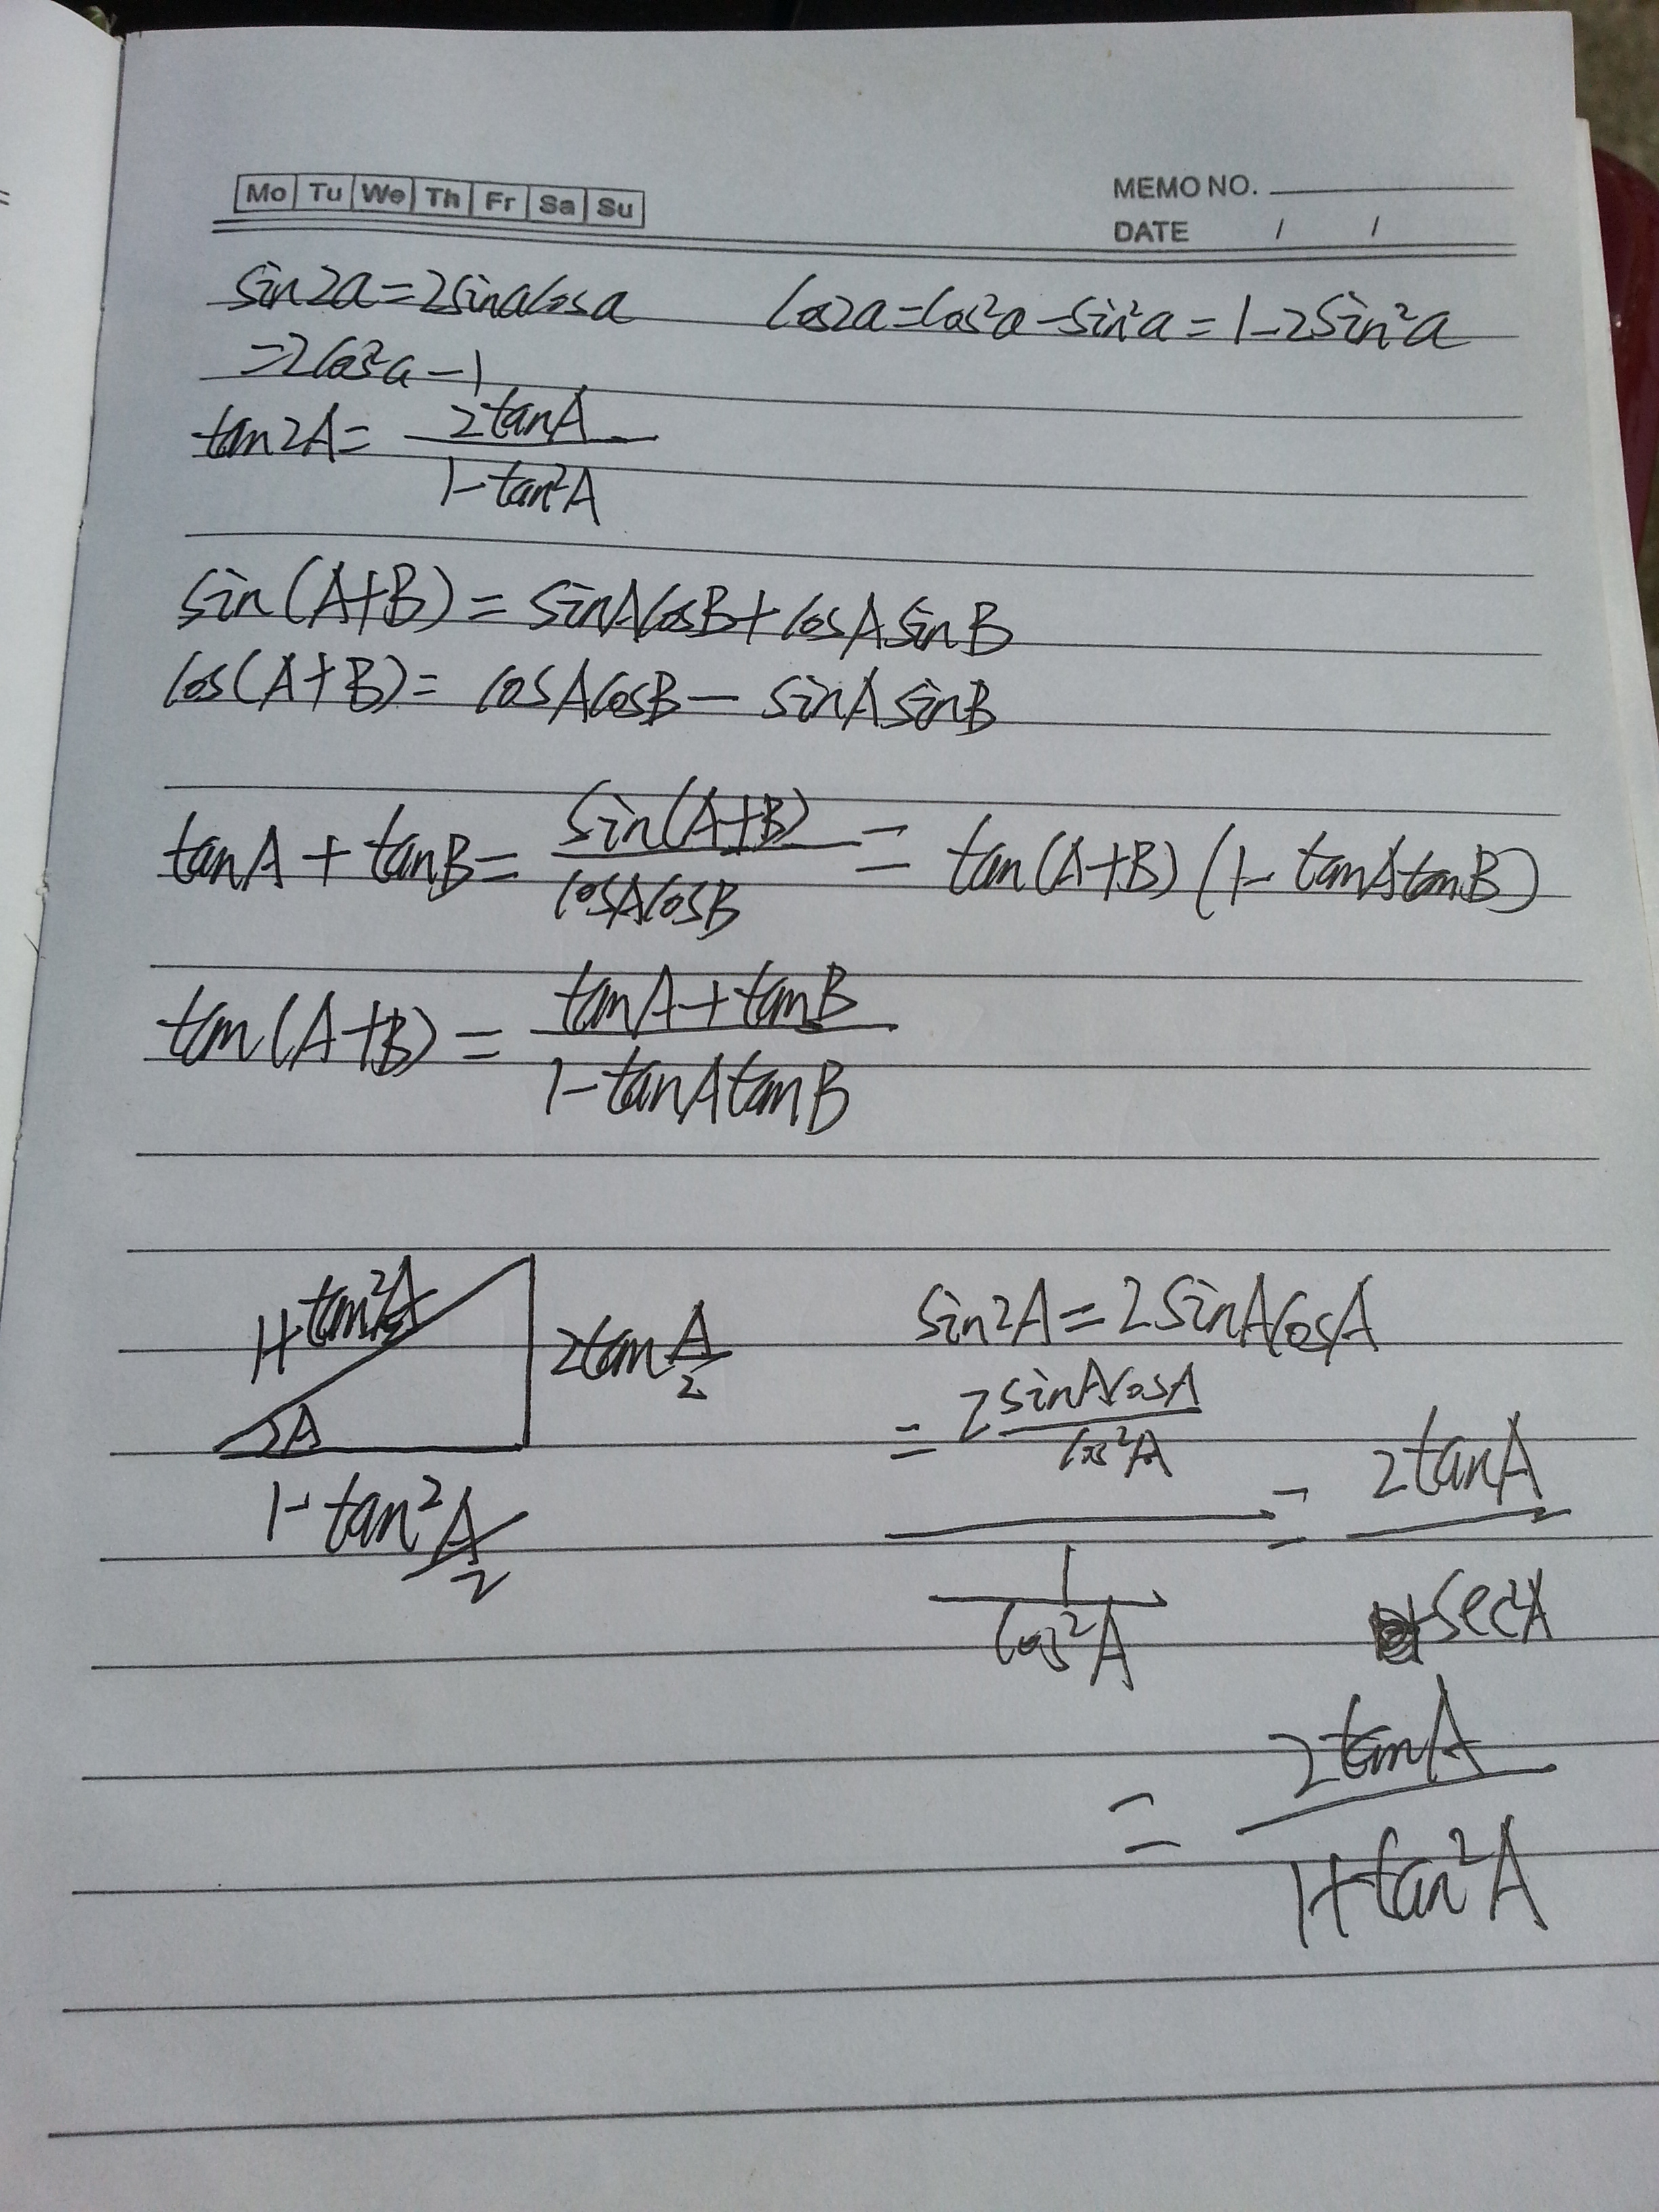 Mo Tu We Th Fr Sa Su
MEMO NO.
DATE / /
sin2a=2sinacosa cos2a=cos²a-sin²a=1-2sin²a
=2cos²a-1
tan2A= 2tanA
1-tan²A
sin(A+B)=sinAcosB+cosAsinB
cos(A+B)=cosAcosB-sinAsinB
tanA+tanB= sin(A+B) = tan(A+B)(1-tanAtanB)
cosAcosB
tan(A+B)= tanA+tanB
1-tanAtanB
1+tan²A/2
2tan A/2
A
1-tan²A/2
sin2A=2sinAcosA
= 2sinAcosA
cos²A
= 2tanA
1
cos²A
sec²A
= 2tanA
1+tan²A